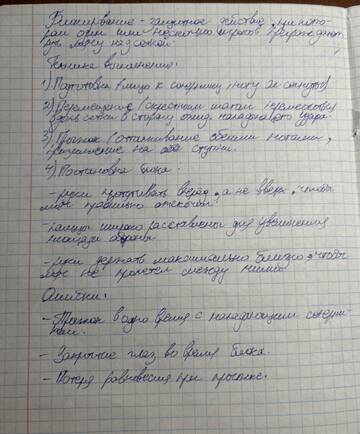 Блокирование - защитное действие, при кото-
ром один или несколько игроков преграждают
путь мячу над сеткой.
Техника выполнения:
1) Подготовка (лицо к сопернику, ноги
2) Перемещение (скрестным шагом
вдоль сетки в сторону нападающего удара.
3) Прыжок (отталкивание обеими ногами,
приземление на обе ступни.
4) Постановка блока.
- руки вперёд, а не вверх, чтобы
мяч правильно отскочил.
- пальцы широко расставлены для увеличения
площади обороны
- руки держать максимально близко, чтобы
мяч не пролетел между ними
Ошибки:
- Прыжок в одно время с нападающим соперни-
ком.
- Закрытие глаз во время блока.
- Потеря равновесия при прыжке.